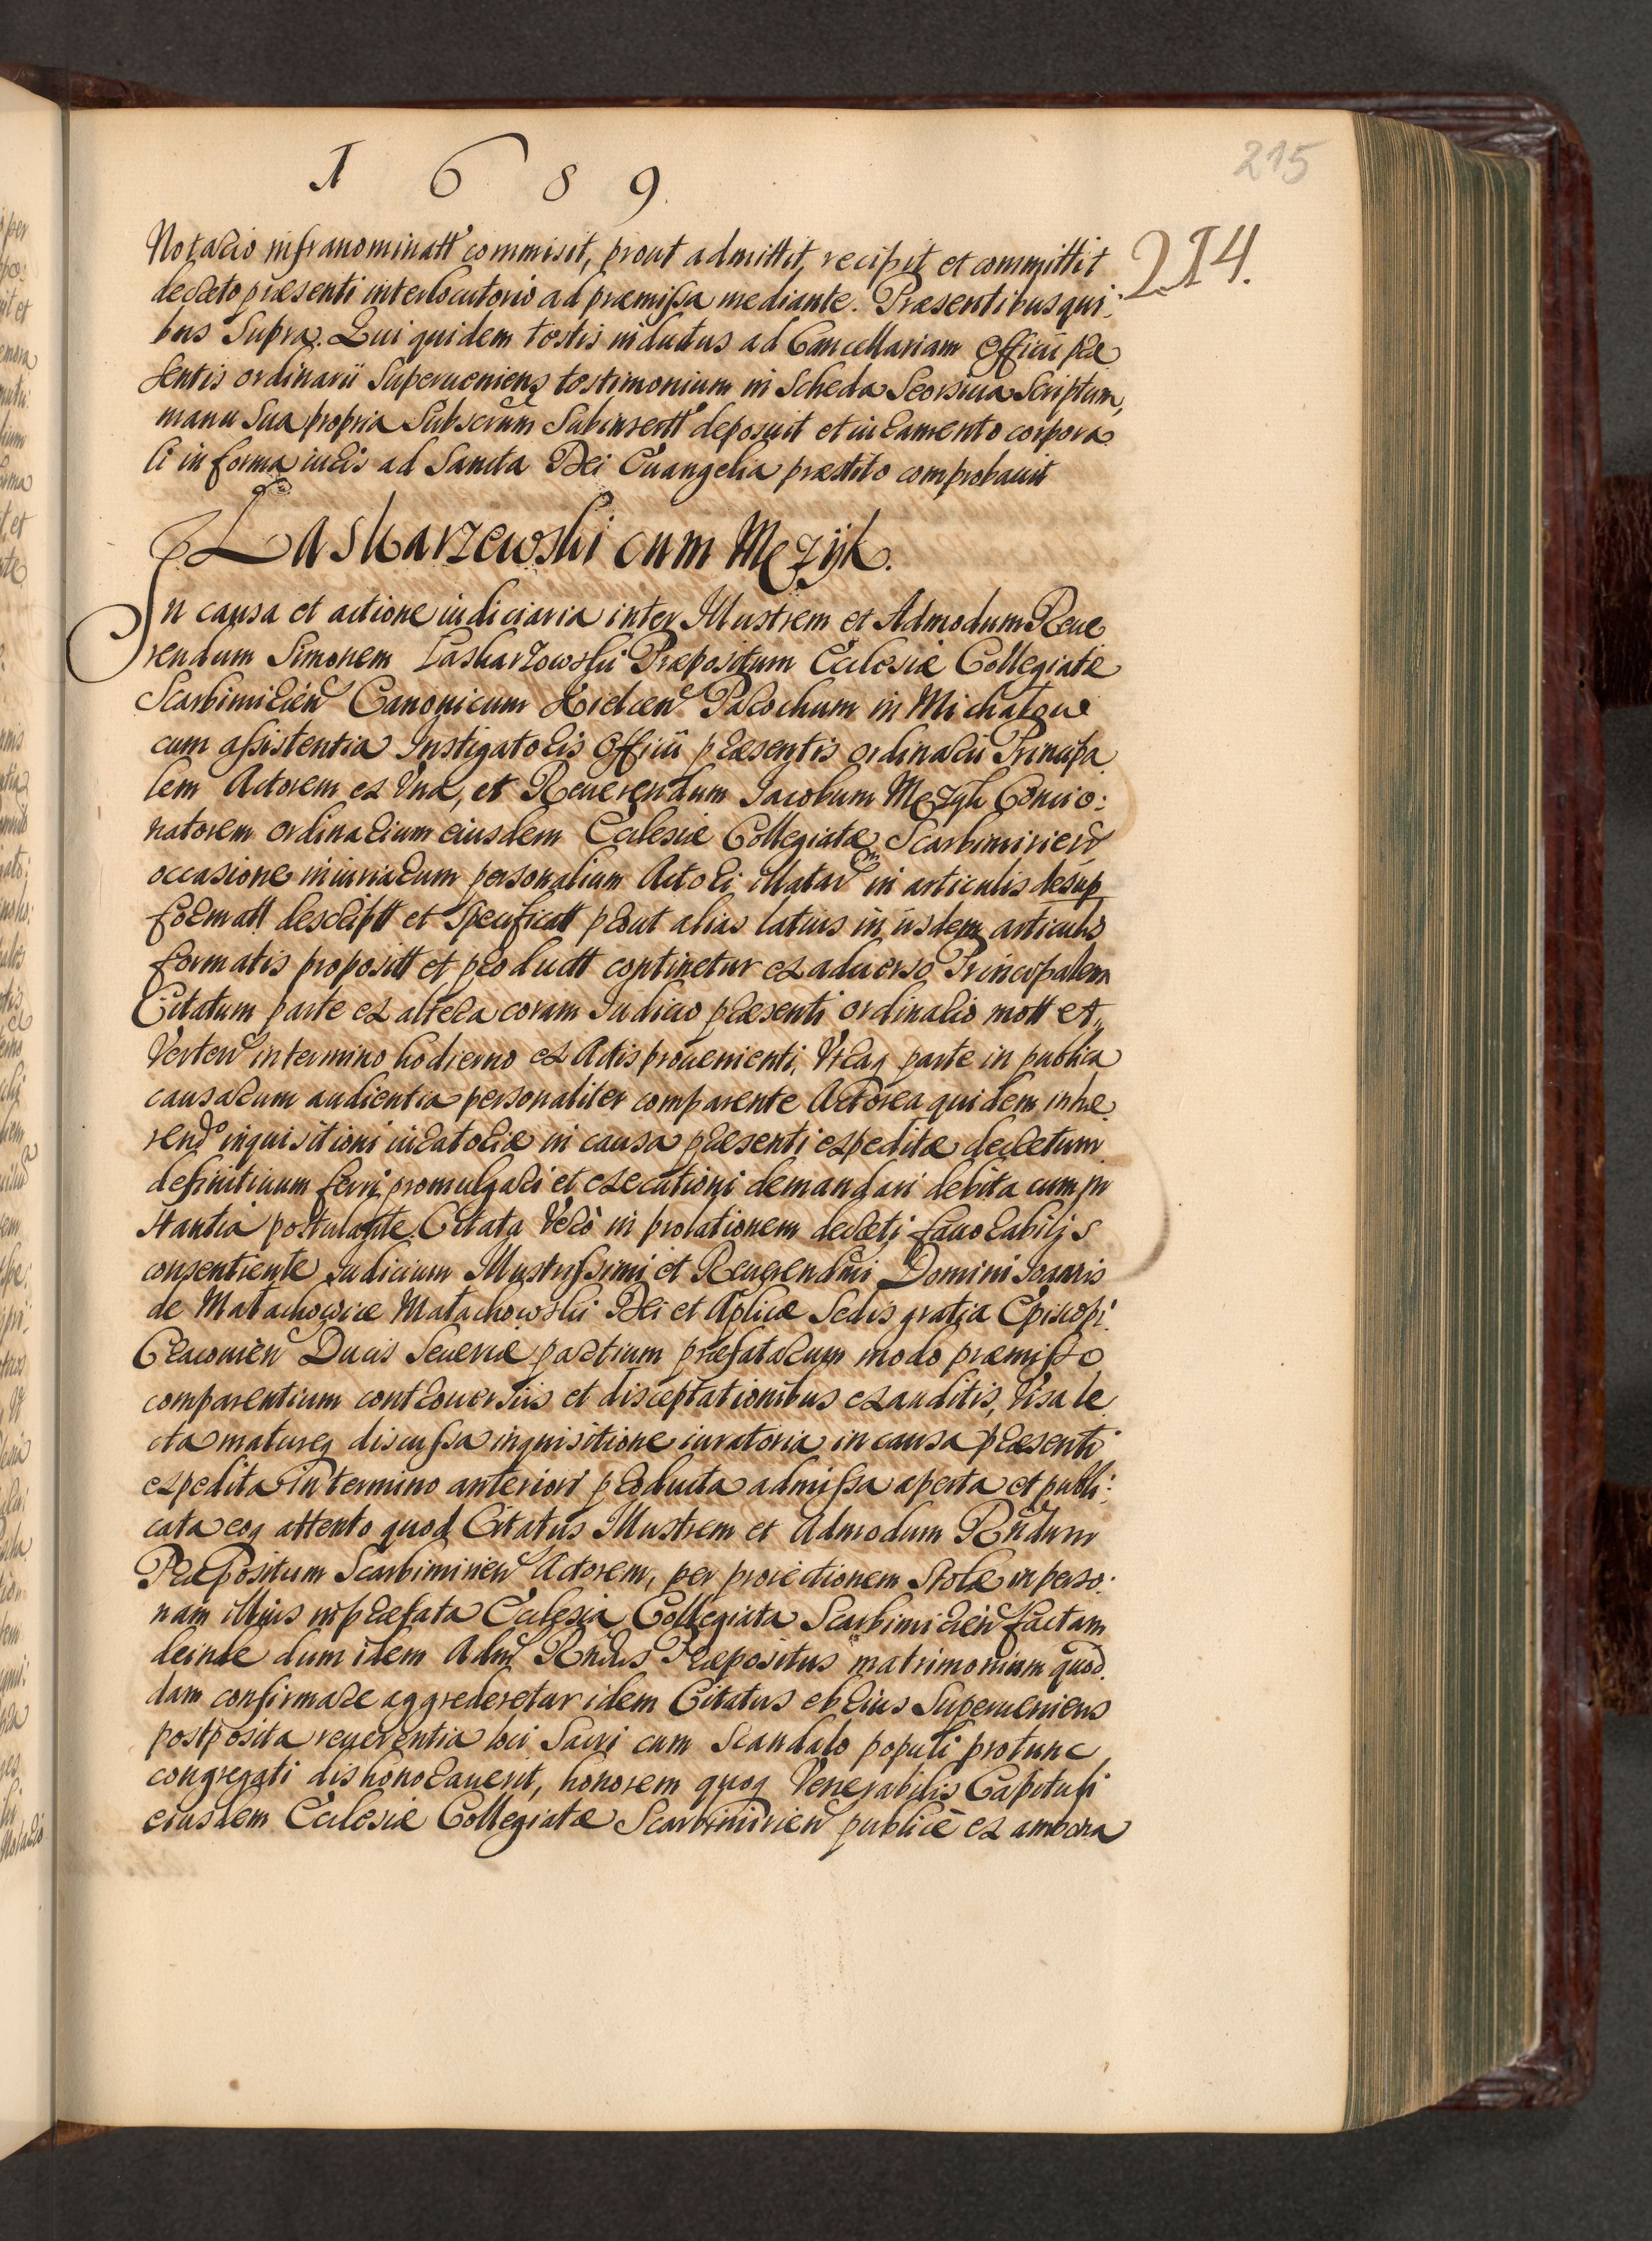 1689.
215
214.
Notario infranominatt commisit, prout admittit, recipit et committit
decreto præsenti interlocutorio ad præmissa mediante. Præsentibus qui:
bus Supra. Qui quidem testis inductus ad Cancellariam Officii præ
sentis ordinarii Superueniens testimonium in Scheda Seorsiua Scriptum,
manu Sua propria Subscrium Subinsertt deposuit et iuramento corpora
li in forma iuris ad Sancta Dei Euangelia præstito comprobauit
Laskarzewski cum Męzyk.
In causa et actione iudiciaria inter Illustrem et Admodum Reue
rendum Simonem Laskarzowski Præpositum Ecclesiæ Collegiatæ
Scarbimirien Canonicum Kielcen Parochum in Michałow
cum assistentia Instigatoris Officii præsentis ordinarii Principa
lem Actorem ex Vna, et Reuerendum Iacobum Męzyk Concio:
natorem ordinarium eiusdem Ecclesiæ Collegiatæ Scarbimirien
occasione iniuriarum personalium Actori illatar in articulis desup
formatt descriptt et Specificatt prout alias latius in iisdem articulis
formatis propositt et productt continetur ex aduerso Principalem
Citatum parte ex altera coram Iudicio præsenti ordinario mott et
Verten in termino hodierno ex Actis prouenienti, Vtraq parte in publica
causarum audientia personaliter comparente Actorea quidem inhe
rendo inquisitioni iuratoriæ in causa præsenti expeditæ decretum
definitiuum ferri, promulgari et executioni demandari debita cum in
stantia postulante. Citata Verò in prolationem decreti fauorabilis
consentiente Iudicium Illustrissimi et Reuerendmi Domini Ioannis
de Małachowice Małachowski Dei et Aplicæ Sedis gratia Episcopi
Cracouien Ducis Seueriæ partium præfatarum modo præmisso
comparentium controuersiis et disceptationibus exauditis, Visa le
cta matureq discussa inquisitione iuratoria in causa præsenti
expedita in termino anteriori producta admissa aperta et publi:
cata eoq attento quod Citatus Illustrem et Admodum Rndum
Præpositum Scarbimirien Actorem, per proiectionem Stolæ in perso:
nam illius in præfata Ecclesia Collegiata Scarbimirien factam
deinde dum idem Adm Rndus Præpositus matrimonium quod
dam confirmare aggrederetur idem Citatus ebrius Superueniens
postposita reuerentia loci Sacri cum Scandalo populi protunc
congregati dishonorauerit, honorem quoq Venerabilis Capituli
eiusdem Ecclesiæ Collegiatæ Scarbimirien publicè ex ambona